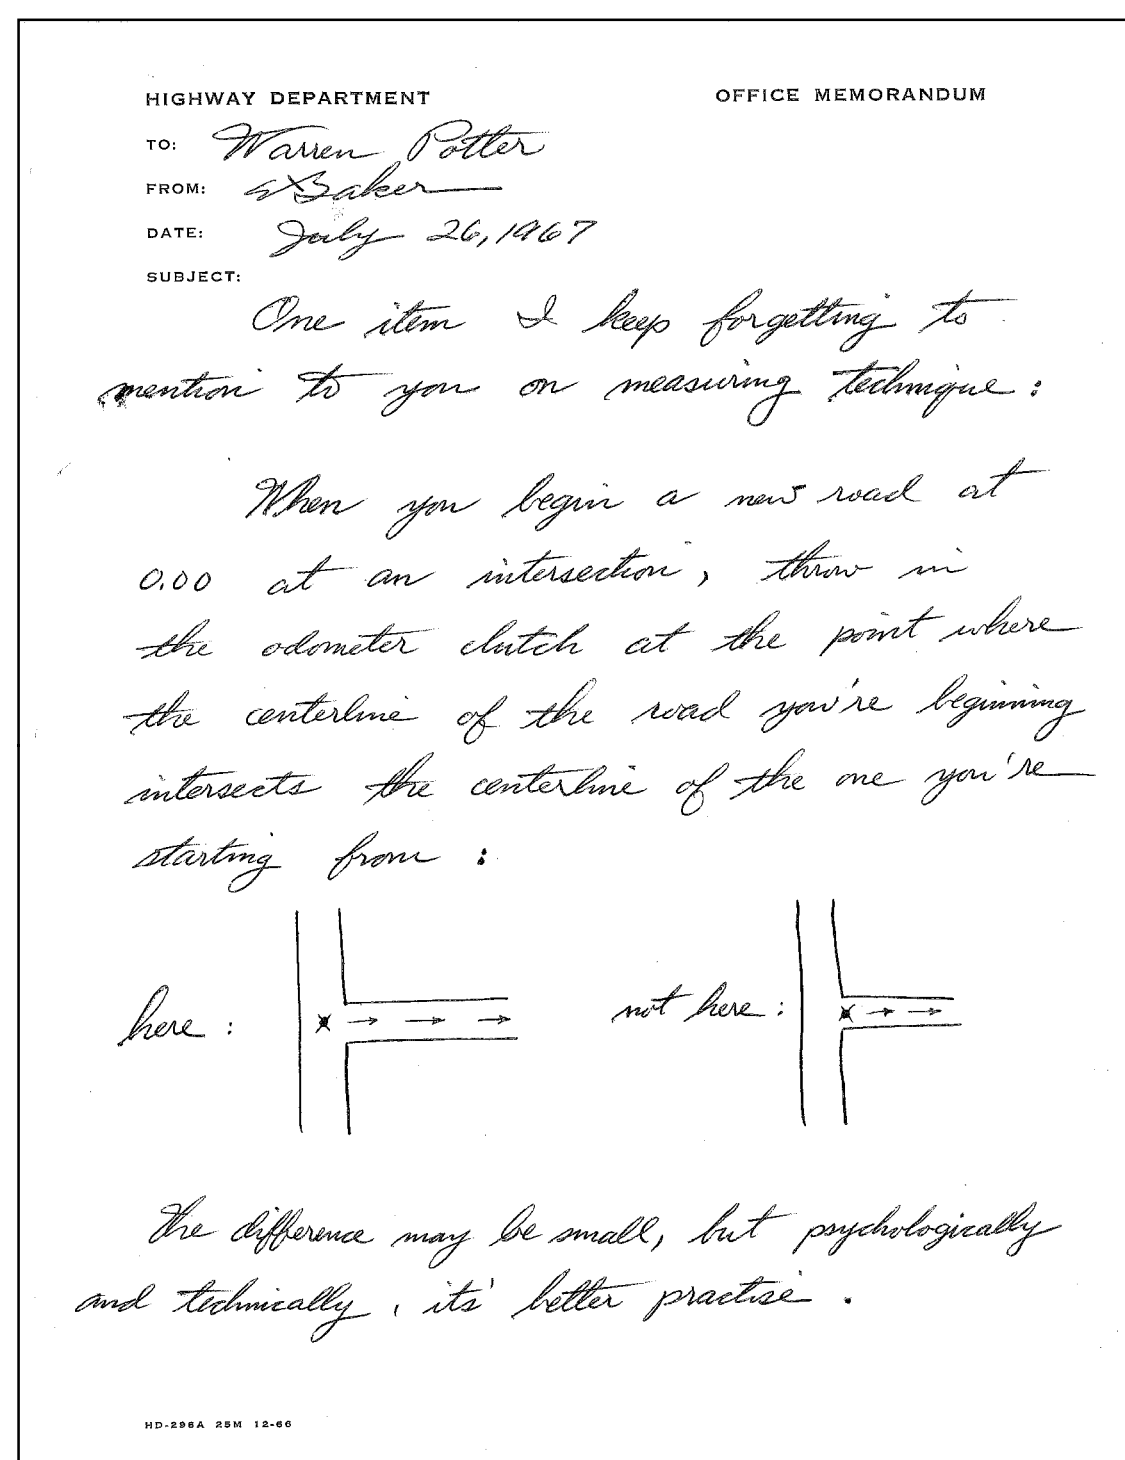 HIGHWAY DEPARTMENT OFFICE MEMORANDUM
TO: Warren Potter
FROM: Baker
DATE: July 26, 1967
SUBJECT:
One item I keep forgetting to
mention to you on measuring technique:
When you begin a new road at
0.00 at an intersection, throw in
the odometer clutch at the point where
the centerline of the road you're beginning
intersects the centerline of the one you're
starting from :
here : not here :
The difference may be small, but psychologically
and technically, its' better practise.
HD-296A 25M 12-66